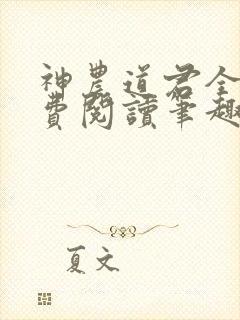 神農道君全
費閱讀筆趣
夏文